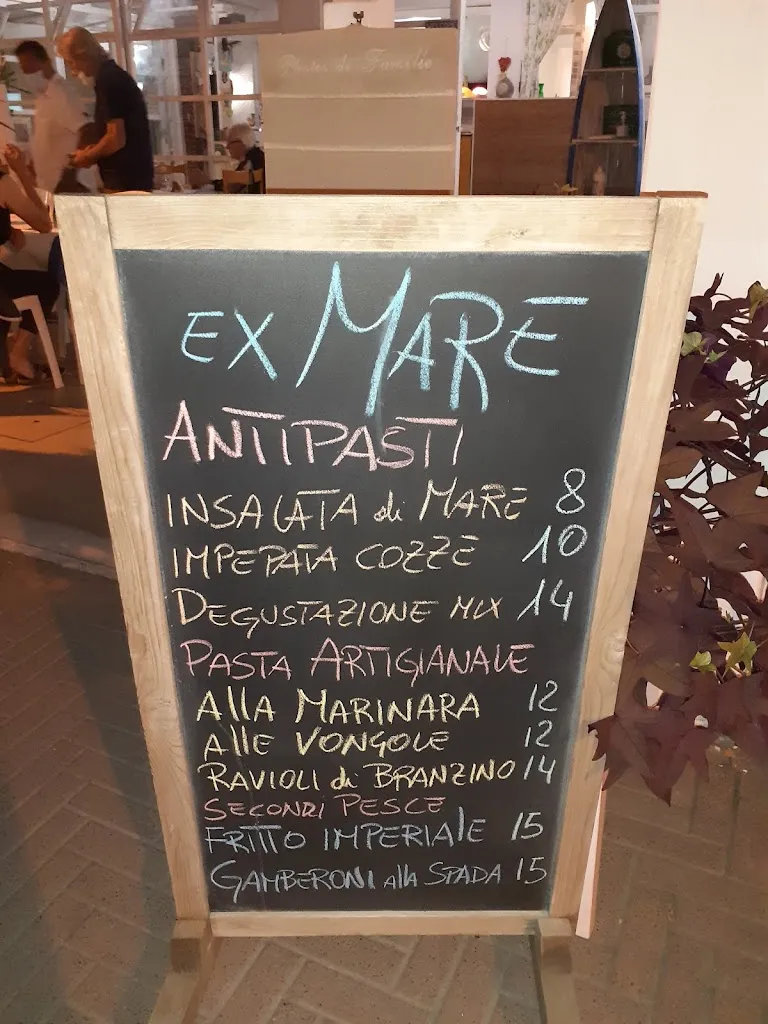 Photos de Famille
EX MARE
ANTIPASTI
INSALATA di MARE 8
IMPEPATA COZZE 10
DEGUSTAZIONE MIX 14
PASTA ARTIGIANALE
AllA MARINARA 12
AllE VONGOLE 12
RAVIOLI di BRANZINO 14
SECONDI PESCE
FRITTO IMPERIAlE 15
GAMBERONI allA SPADA 15